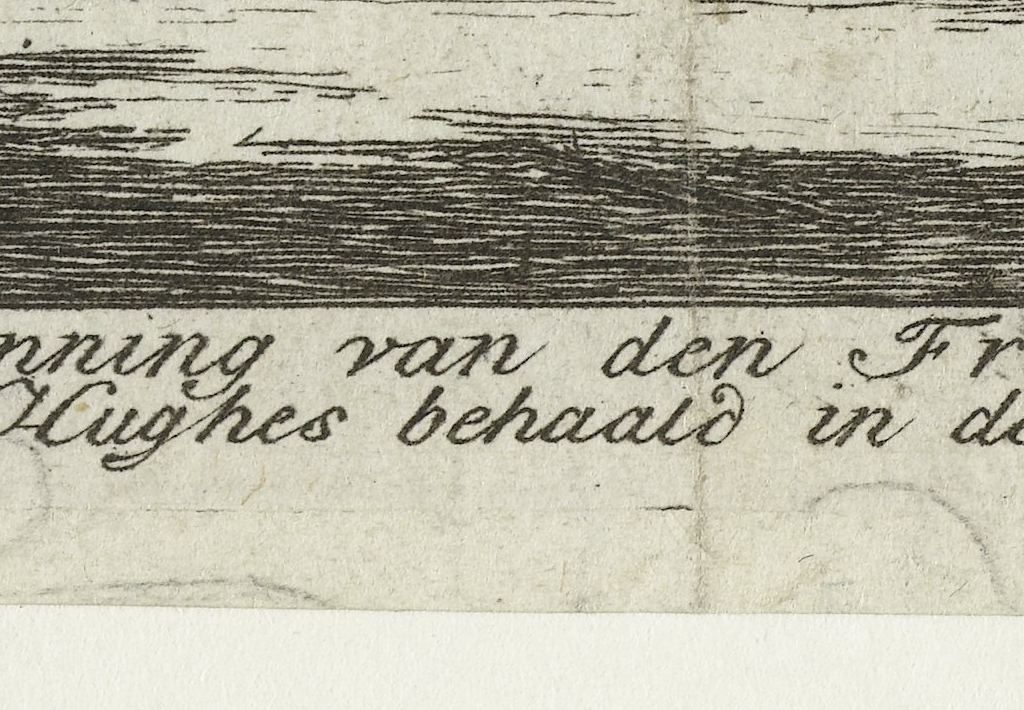 nning van den Fr
Hughes behaald in de